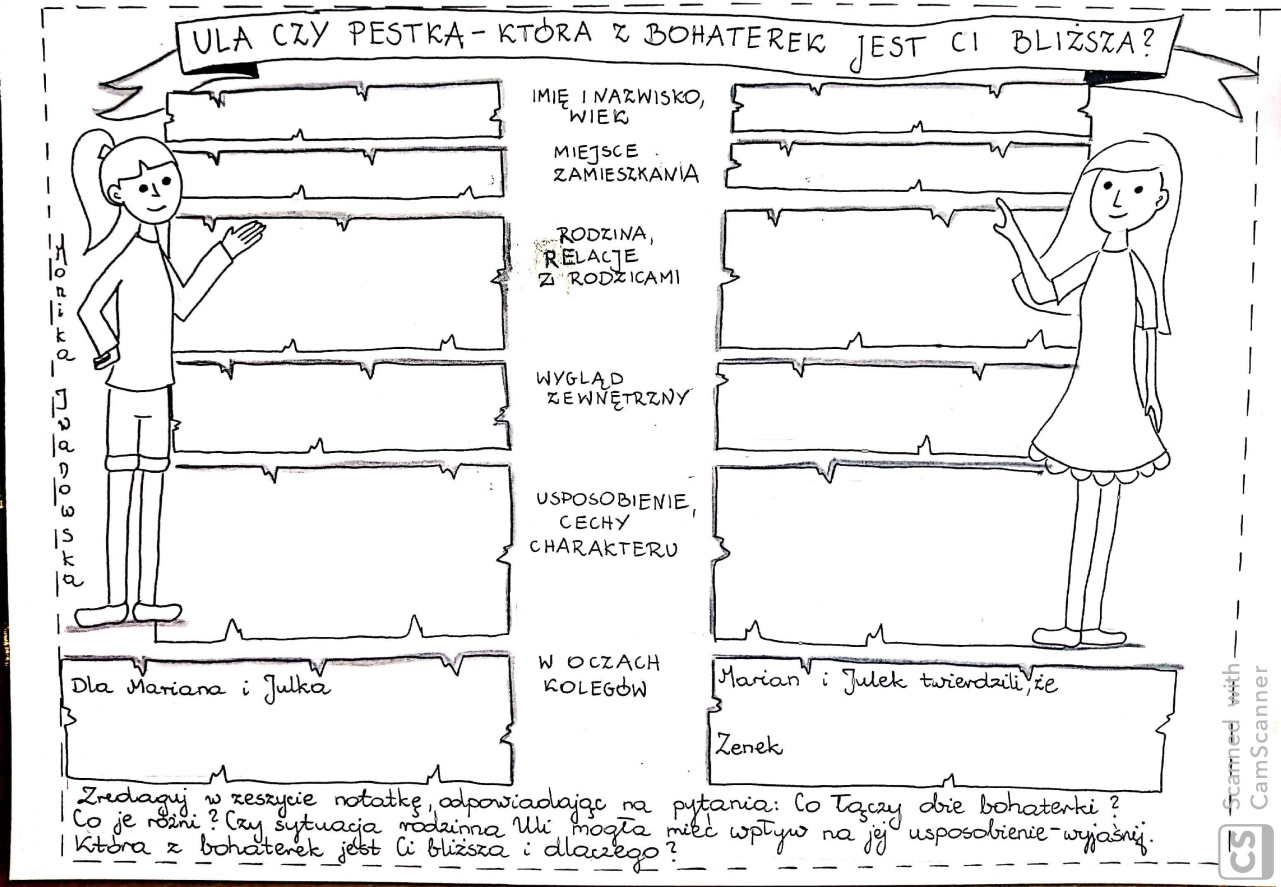 ULA CZY PESTKA - KTÓRA Z BOHATEREK JEST CI BLIŻSZA?
IMIĘ I NAZWISKO,
WIEK
MIEJSCE
ZAMIESZKANIA
RODZINA,
RELACJE
Z RODZICAMI
WYGLĄD
ZEWNĘTRZNY
USPOSOBIENIE,
CECHY
CHARAKTERU
W OCZACH
KOLEGÓW
Dla Mariana i Julka
Marian i Julek twierdzili, że
Zenek
Zredaguj w zeszycie notatkę, odpowiadając na pytania: Co łączy obie bohaterki?
Co je różni? Czy sytuacja rodzinna Uli mogła mieć wpływ na jej usposobienie-wyjaśnij.
Która z bohaterek jest Ci bliższa i dlaczego?
Monika Iwanowska
Scanned with
CamScanner
CS